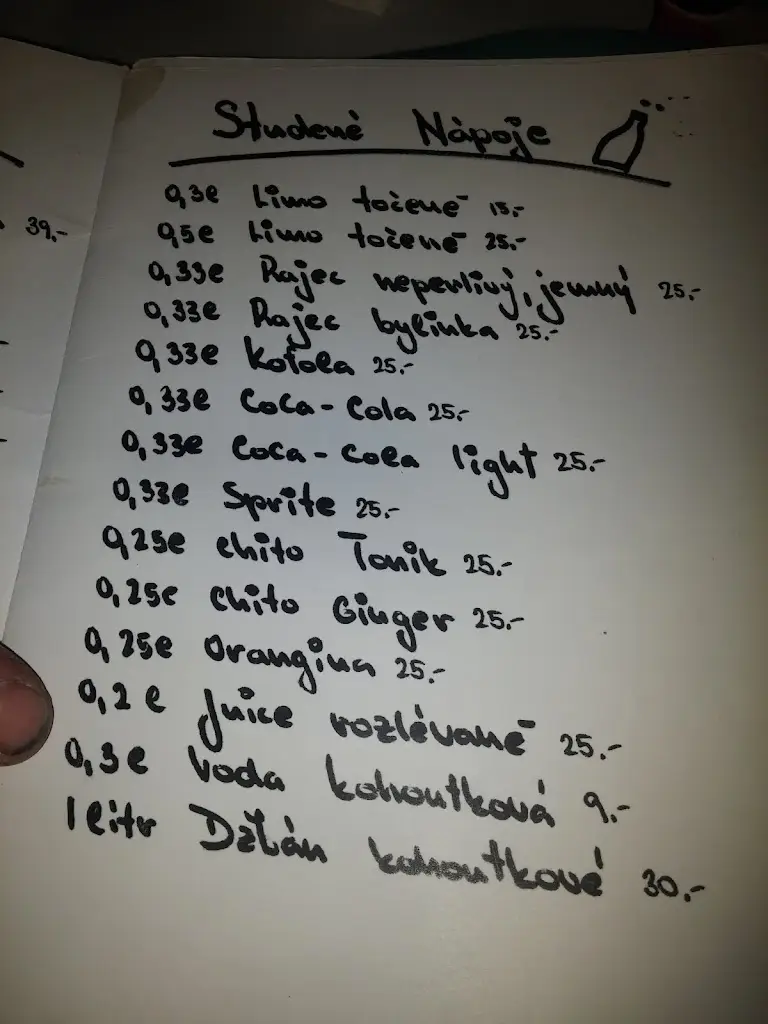 Studené Nápoje
39,-
0,3l Limo točené 15,-
0,5l Limo točené 25,-
0,33l Rajec neperlivý, jemný 25,-
0,33l Rajec bylinka 25,-
0,33l Kofola 25,-
0,33l Coca-Cola 25,-
0,33l Coca-Cola light 25,-
0,33l Sprite 25,-
0,25l Chito Tonik 25,-
0,25l Chito Ginger 25,-
0,25l Orangina 25,-
0,2l Juice rozlévané 25,-
0,3l Voda kohoutková 9,-
1 litr Džbán kohoutkové 30,-